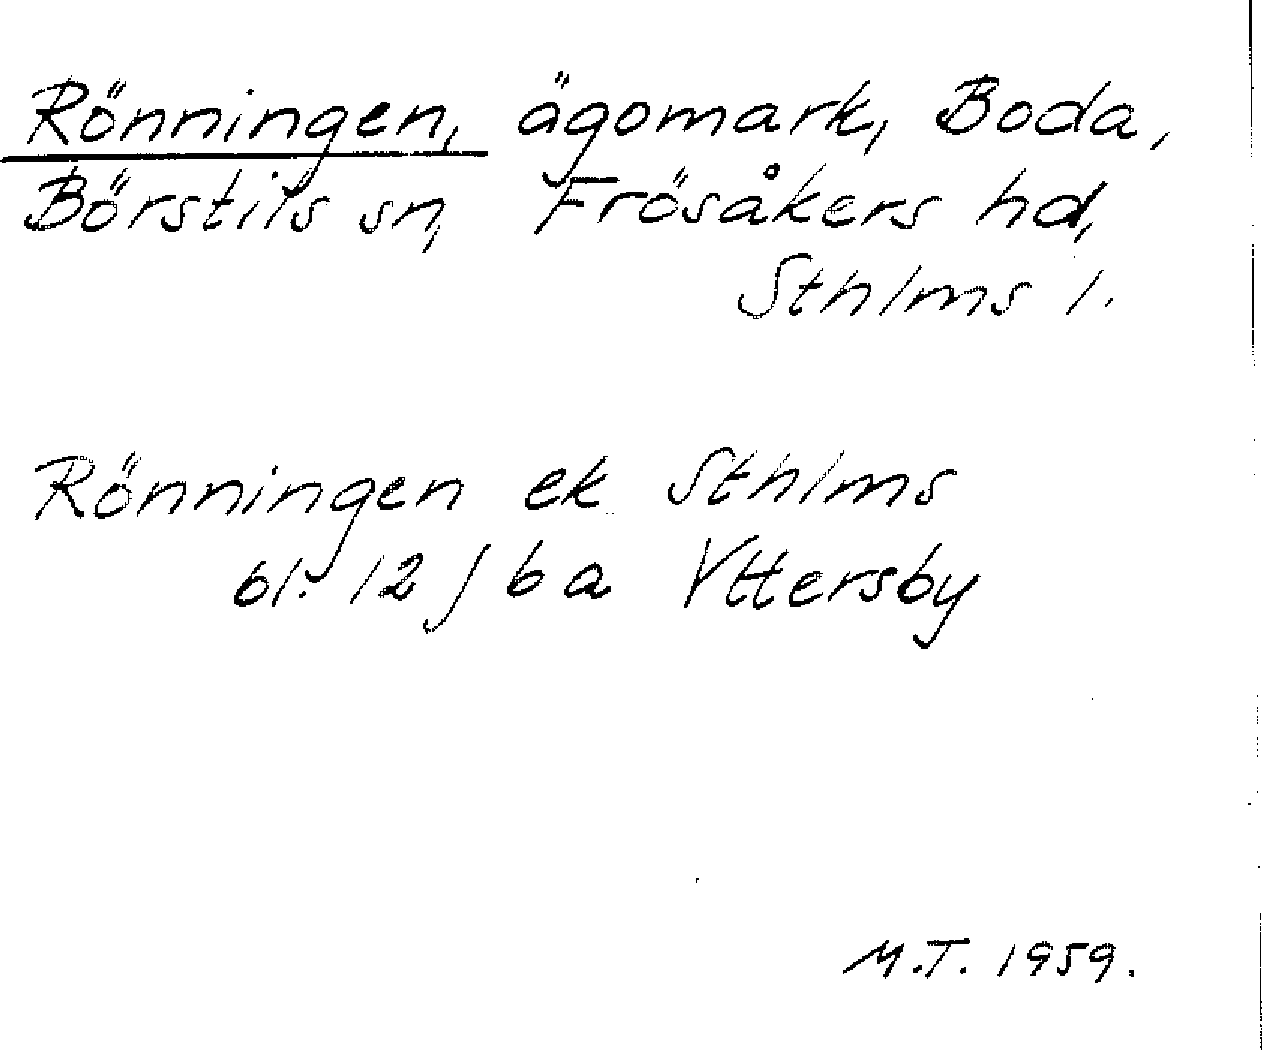 Rönningen, ägomark, Boda,
Börstils sn, Frösåkers hd,
Sthlms l.
Rönningen ek Sthlms
bl. 12 J 6 a Yttersby
M.T. 1959.